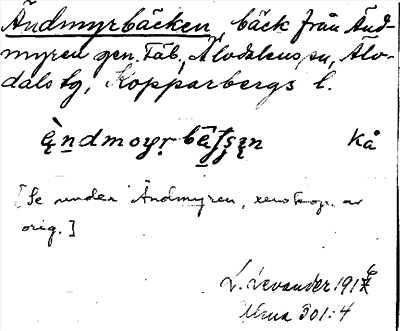 Ändmyrbäcken, bäck från Änd-
myren gen. Täb., Älvdalens sn, Älv-
dals tg, Kopparbergs l.
ȩ̀ndmoyr bȩtsȩn Kå
[Se under Ändmyren, xerokop. av
orig.]
L. Levander 191
Ulma 301:4